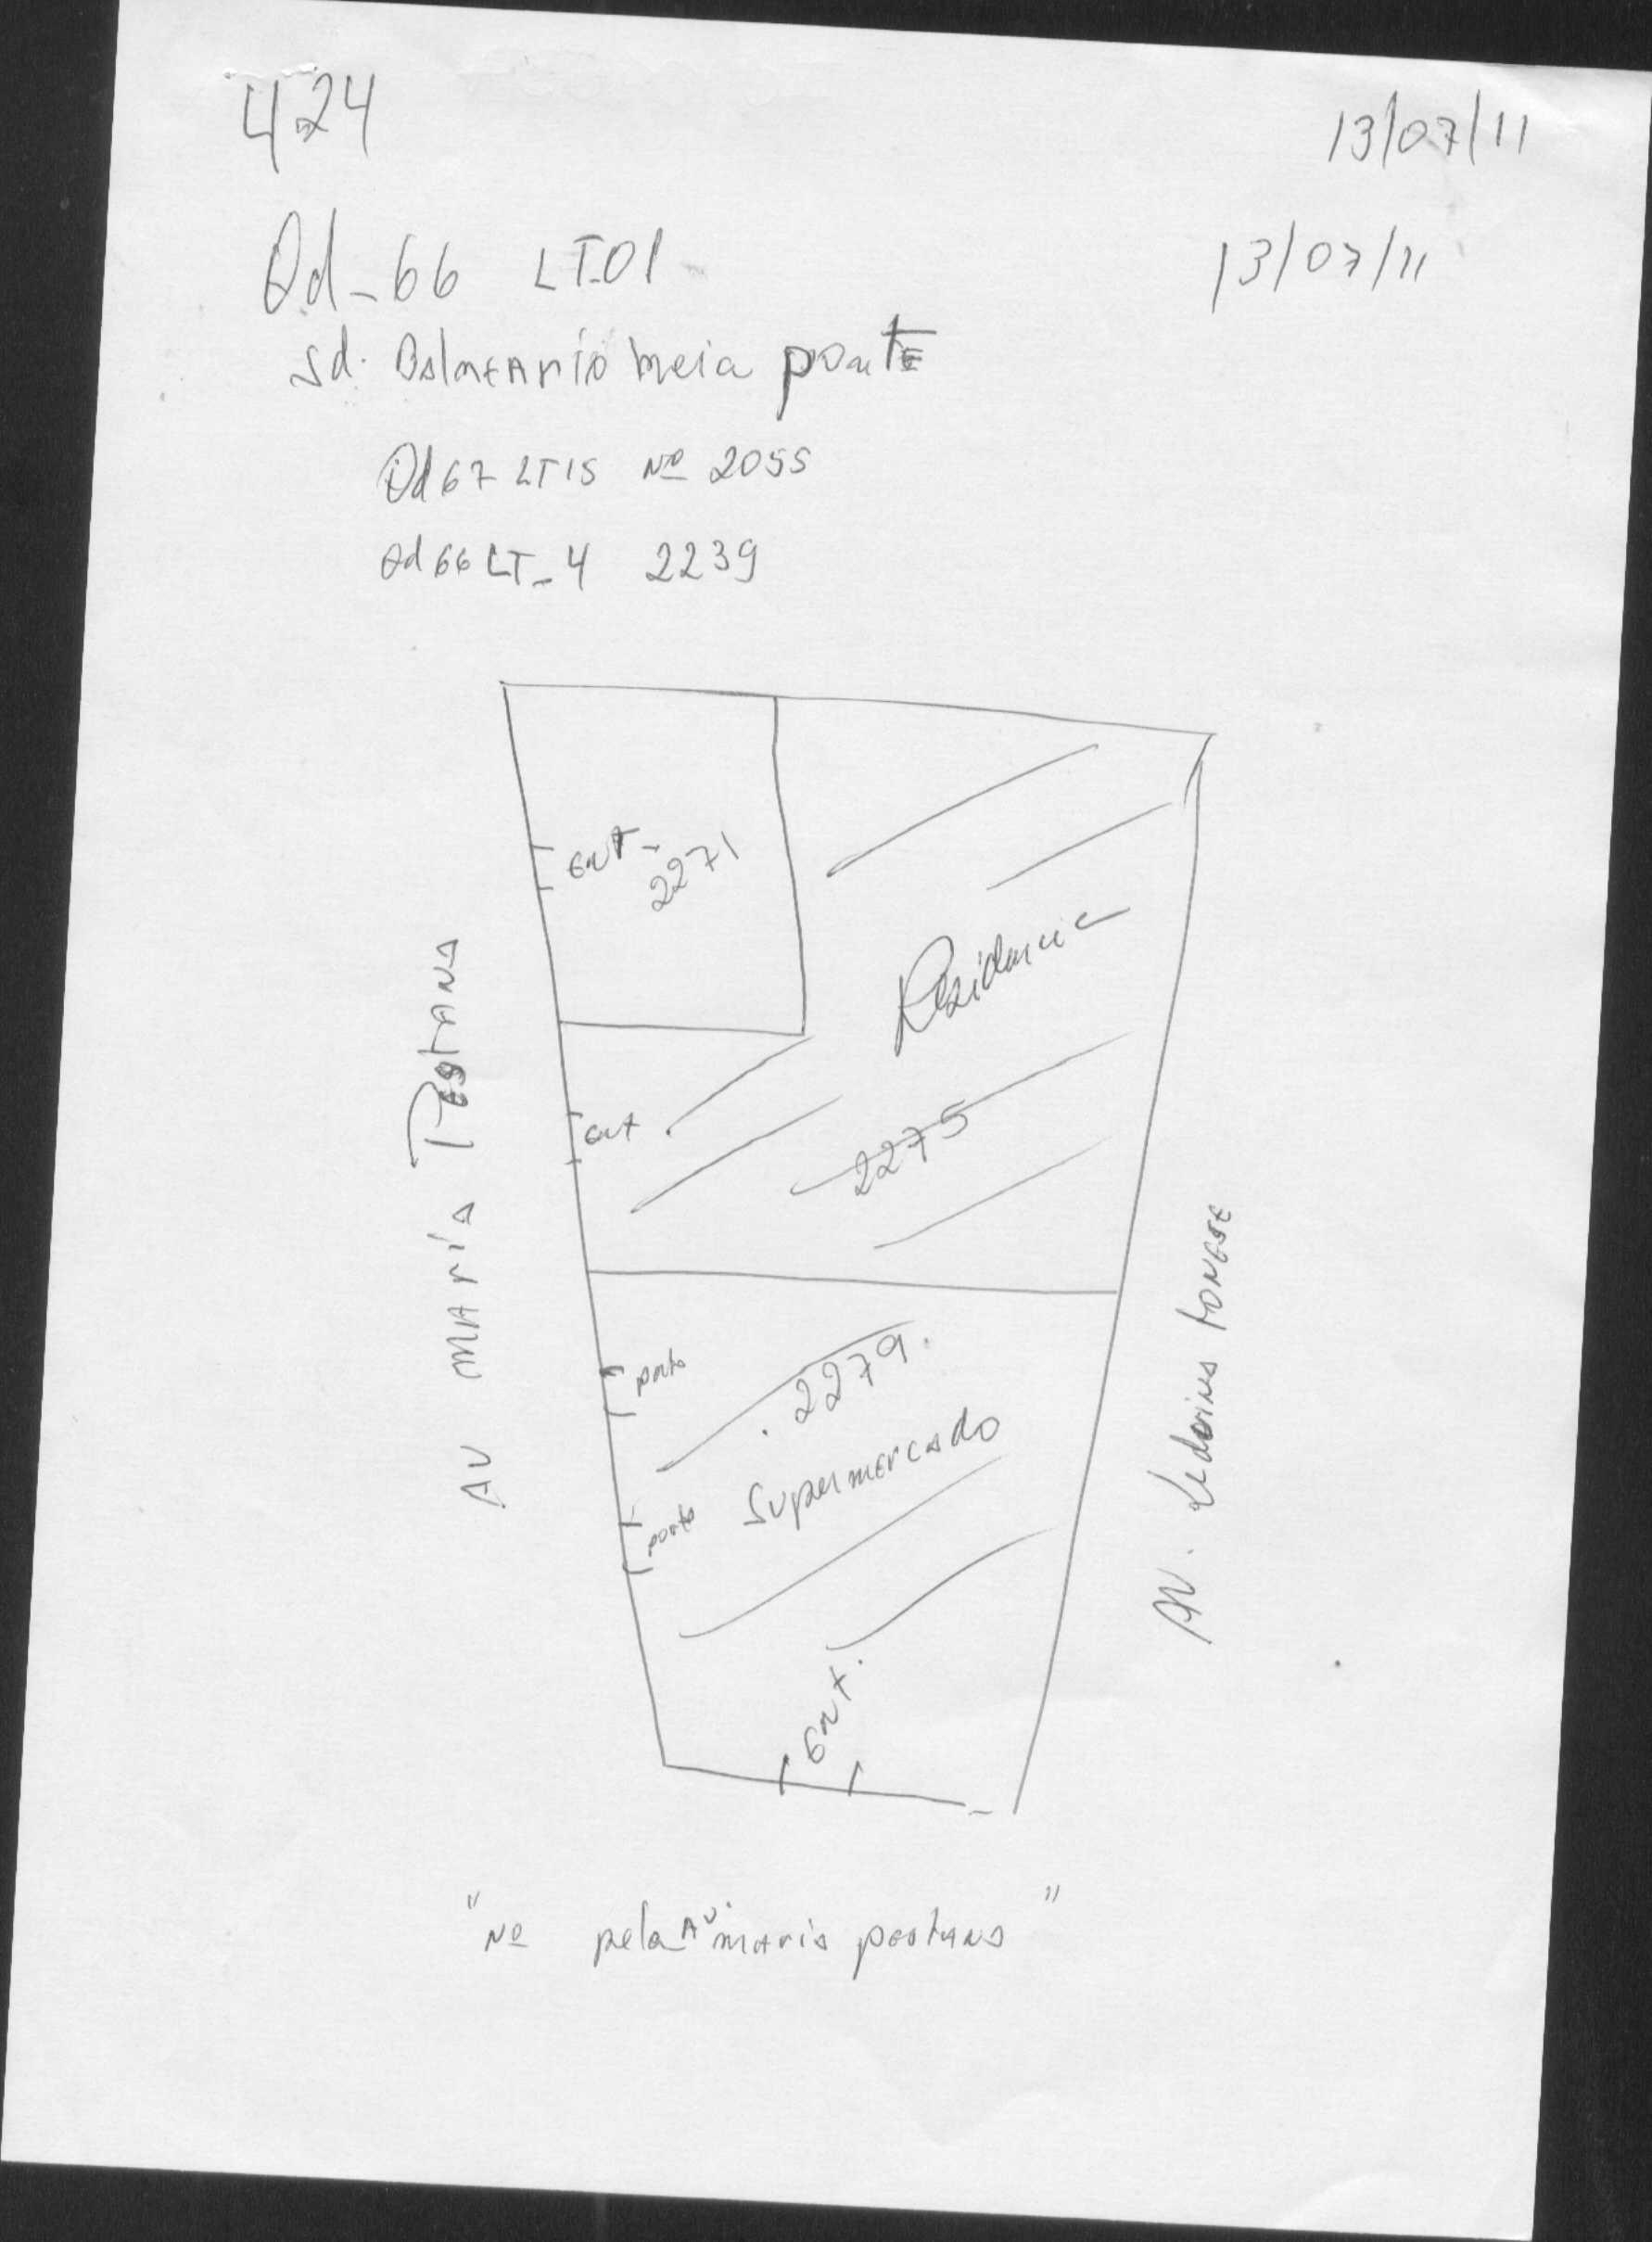 424
13/07/11
Qd-66 LT-01
13/07/11
Sd. BalnEArio meia pontE
Qd 67 LT 15 Nº 2055
Qd 66 LT-4 2239
Ent-
2271
Residencia
Ent
2275
AV MAria PestANA
porta
2279.
Supermercado
porta
AV.
Ent.
"Nº pela Av. maria pestana"